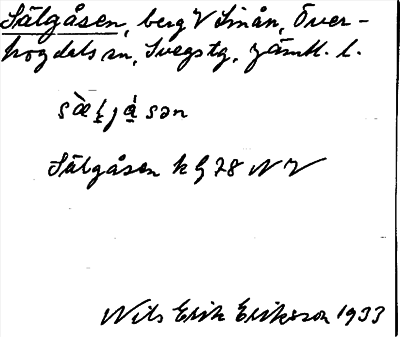 Sälgåsen, berg V Sinån, Över-
hogdals sn, Svegs tg, Jämtl. l.
Sälgåsen k G 78 N V
Nils Erik Eriksson 1933